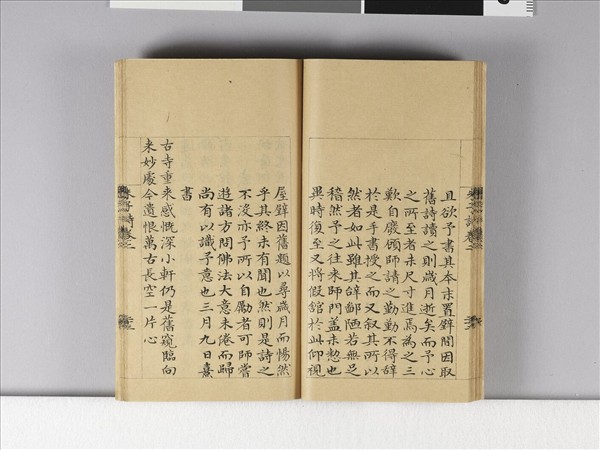 且欲予書其本末置壁間因取
舊詩讀之則歲月逝矣而予心
之所至者未尺寸進焉為之三
歎自廢顧師請之勤勤不得辭
於是手書授之而又叙其所以
然者如此雖其辭鄙陋若無足
稽然予之往來師門蓋未愁也
異時復至又將假舘於此仰視
屋壁因舊題以尋歲月而惕然
乎其終未有聞也然則是詩之
不沒亦予所以自勵者可師嘗
遊諸方問佛法大意未倦而歸
尚有以識予意也三月九日熹
書
古寺重來感慨深小軒仍是舊窺臨向
來妙處今遺恨萬古長空一片心